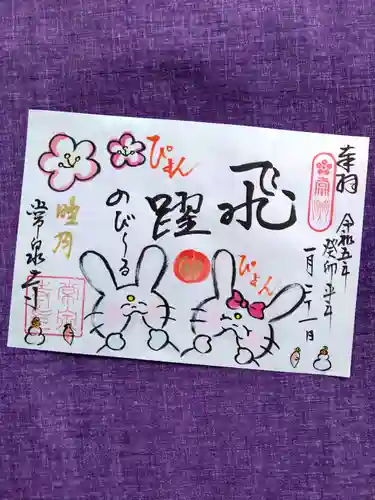 奉拝
令和五年
癸卯
一月二十一日
飛躍
ぴょん
ぴょん
のび〜る
睦月
常泉寺